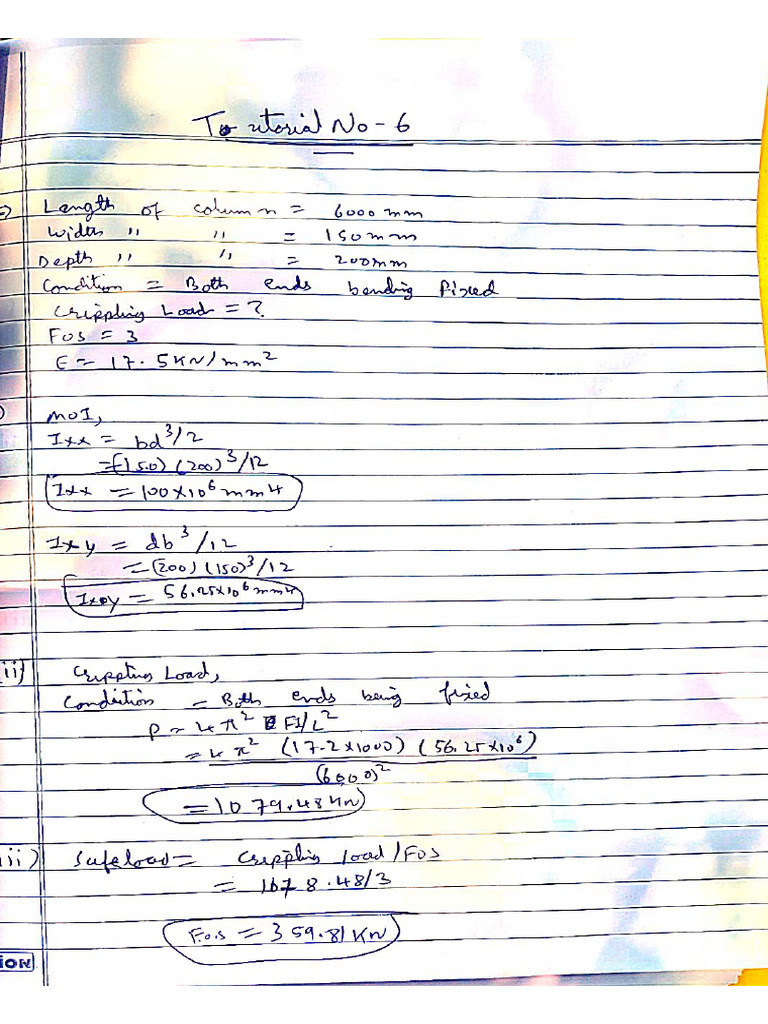 Tutorial No - 6
=> Length of column = 6000 mm
Width " " = 150 mm
Depth " " = 200mm
Condition = Both ends bending fixed
Crippling Load = ?
FOS = 3
E = 17.5 KN/mm²
) MOI,
Ixx = bd³/2
= (150) (200)³/12
Ixx = 100×10⁶ mm4
Ixy = db³/12
= (200) (150)³/12
Ixy = 56.25×10⁶ mm4
ii) Crippling Load,
Condition = Both ends being fixed
P = 4π² EI/L²
= 4π² (17.2×1000) (56.25×10⁶)
(6000)²
= 1079.48 KN
iii) Safeload = Crippling load/FOS
= 1078.48/3
F.o.s = 359.81 KN
ION